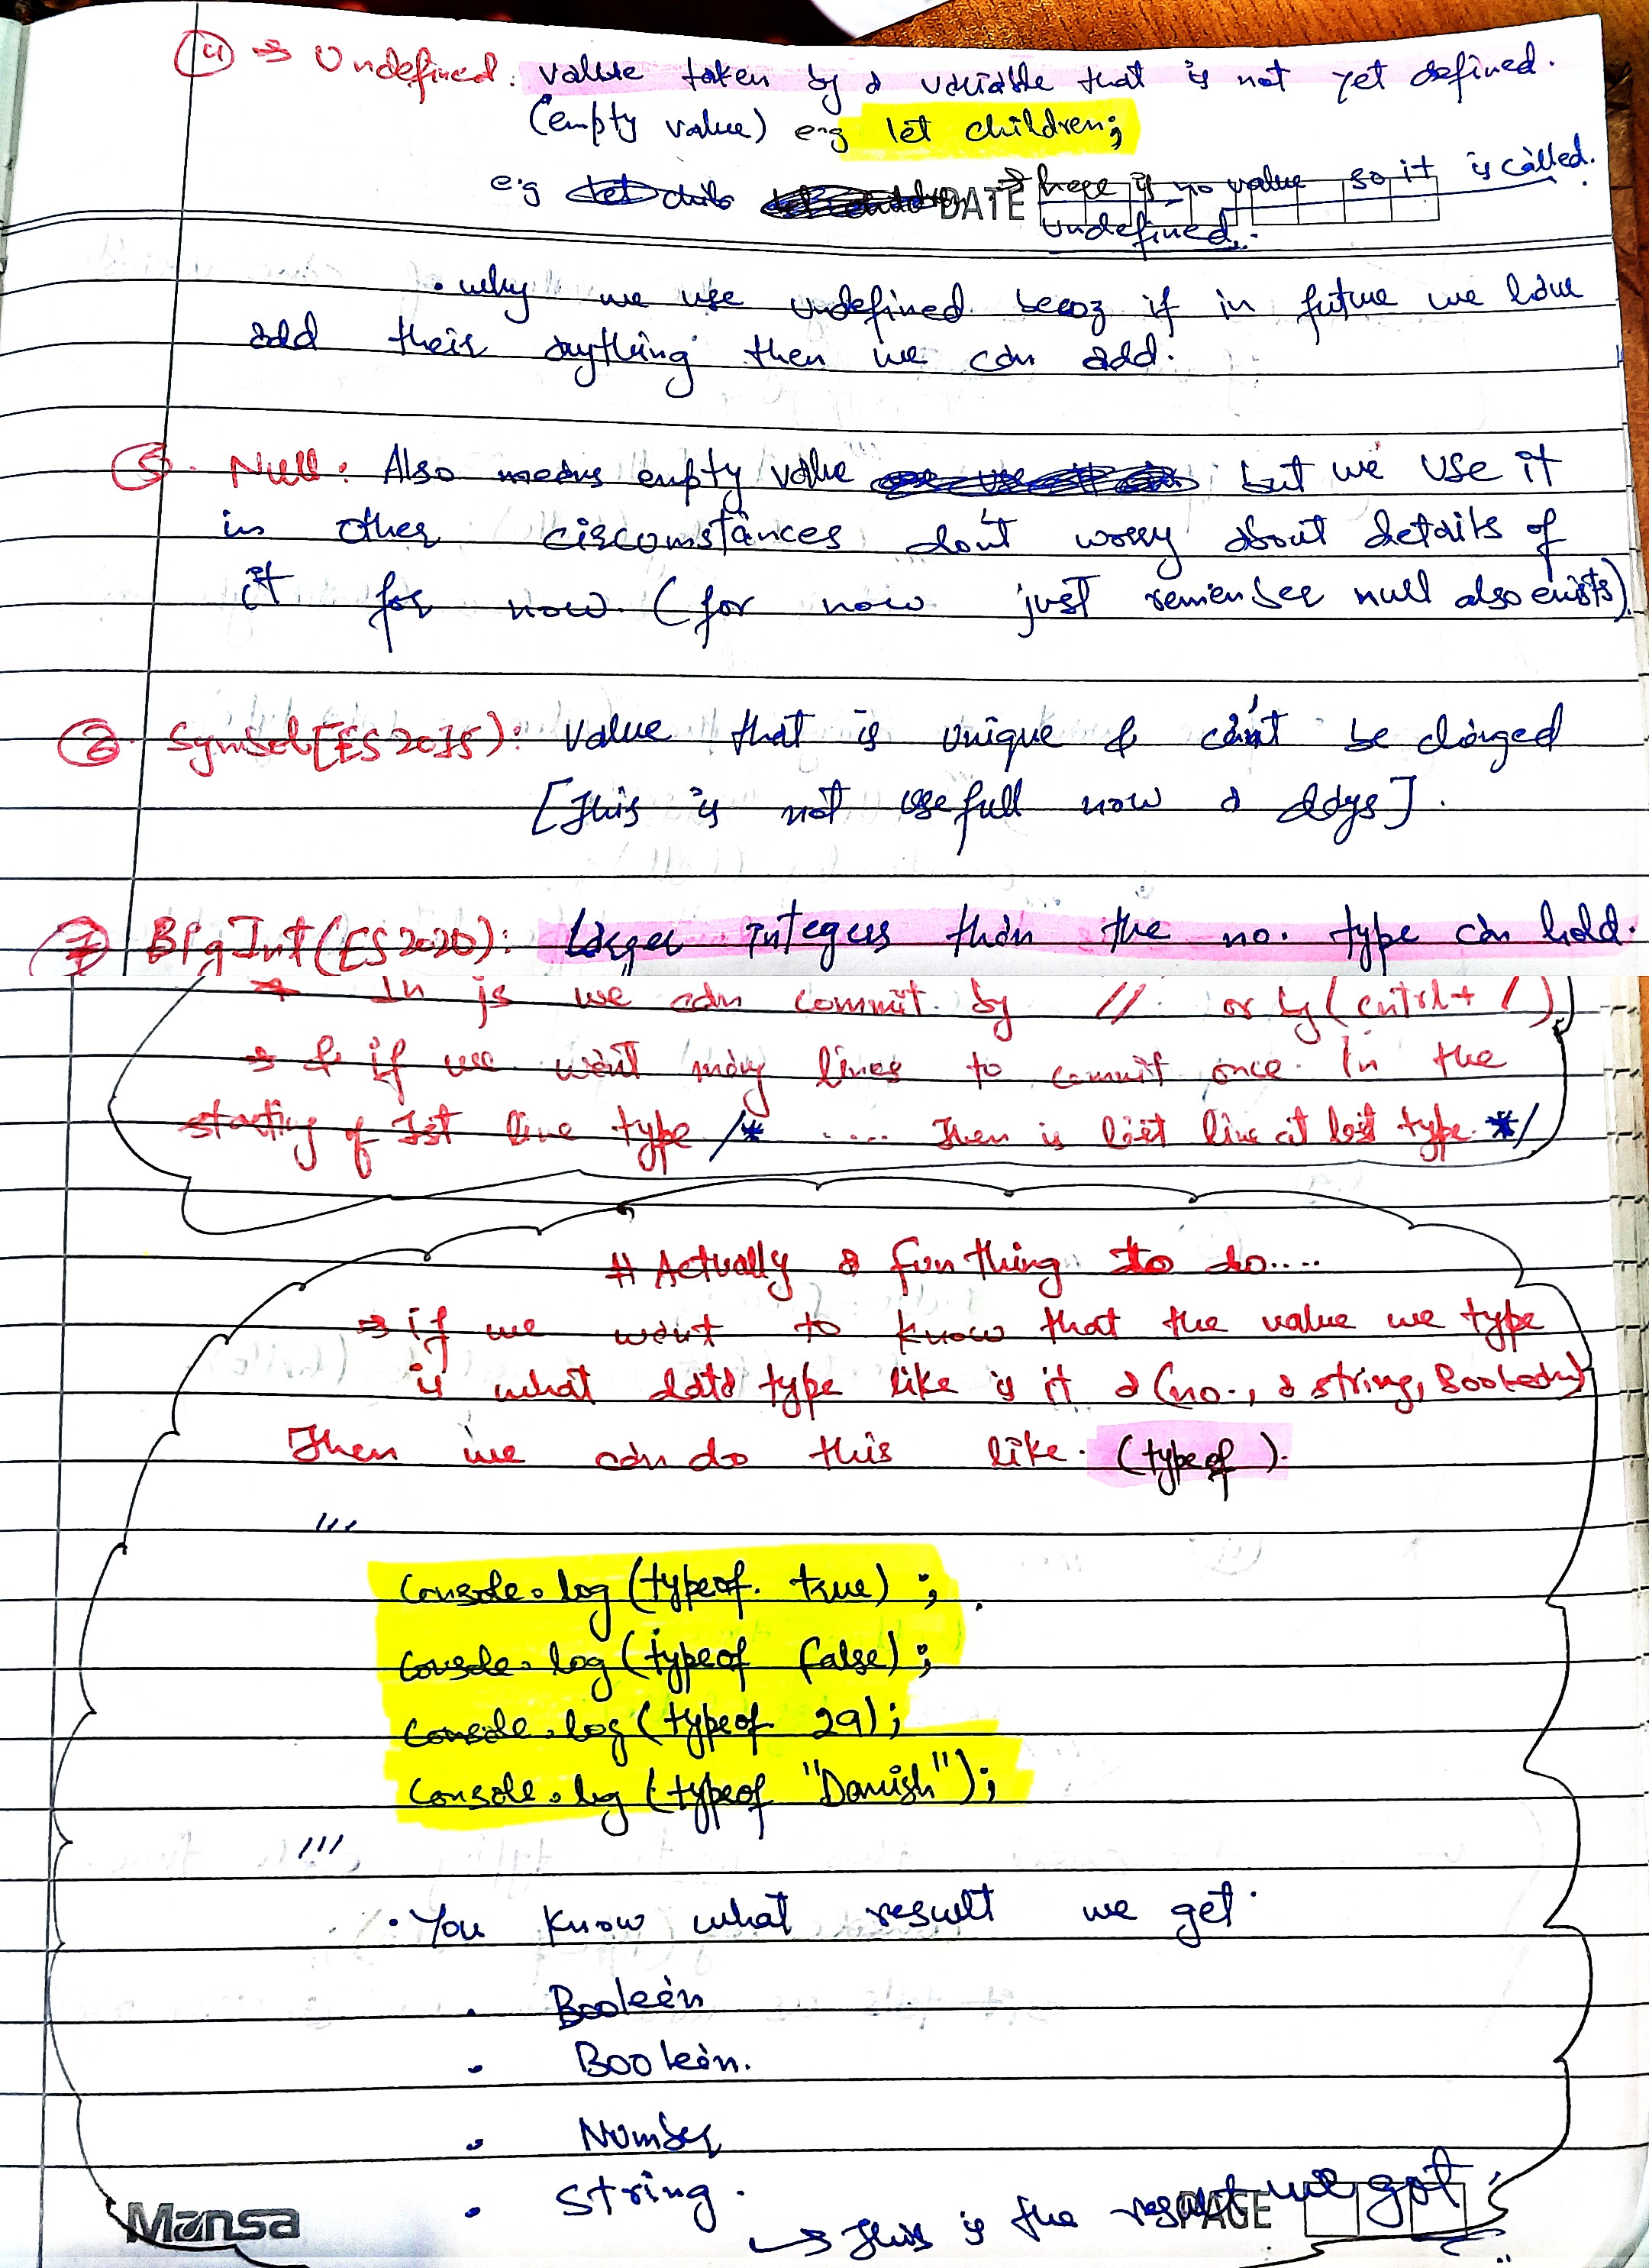 ④ → Undefined: value taken by a variable that is not yet defined.
(empty value) e.g let children;
e.g DATE → here is no value so it is called.
Undefined.
• why we use undefined becoz if in future we have
add their anything then we can add.
⑤. Null: Also means empty value but we use it
in other circomstances don't worry about details of
it for now. (for now just remember null also exists)
⑥. Symbol[ES2015): Value that is unique & can't be changed
[This is not usefull now a days].
⑦ BigInt(ES2020): Larger integers than the no. type can hold.
→ In js we can commit by // or by (cntrl + /)
→ & if we want many lines to commit once. In the
starting of 1st line type /* .... Then is last line at last type */
# Actually a fun thing to do....
→ if we want to know that the value we type
is what data type like is it a (no., a string, Boolean)
Then we can do this like. (typeof).
'''
Console.log (typeof. true) ;
Console.log (typeof false) ;
Console.log (typeof 29) ;
Console.log (typeof "Danish") ;
'''
• You know what result we get.
• Boolean
• Boolean.
• Number
• String.
→ This is the result we got
Mansa PAGE